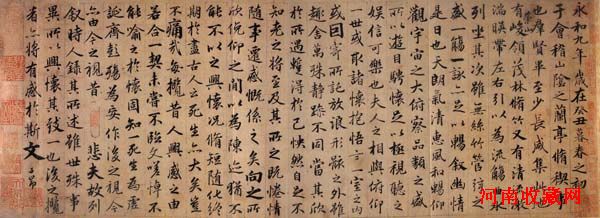 永和九年歲在癸丑暮春之初會
于會稽山陰之蘭亭脩禊事
也群賢畢至少長咸集此地
有峻領茂林脩竹又有清流激
湍暎帶左右引以為流觴曲水
列坐其次雖無絲竹管弦之
盛一觴一詠亦足以暢叙幽情
是日也天朗氣清惠風和暢仰
觀宇宙之大俯察品類之盛
所以遊目騁懷足以極視聽之
娛信可樂也夫人之相與俯仰
一世或取諸懷抱悟言一室之內
或因寄所託放浪形骸之外雖
趣舍萬殊靜躁不同當其欣
於所遇暫得於己怏然自足不
知老之將至及其所之既惓情
隨事遷感慨係之矣向之所
欣俛仰之閒以為陳迹猶不
能不以之興懷況脩短隨化終
期於盡古人云死生亦大矣豈
不痛哉每攬昔人興感之由
若合一契未嘗不臨文嗟悼不
能喻之於懷固知死生為虛
誕齊彭殤為妄作後之視今
亦由今之視昔 悲夫故列
叙時人錄其所述雖世殊事
異所以興懷其致一也後之攬
者亦將有感於斯文
子昂
河南收藏网